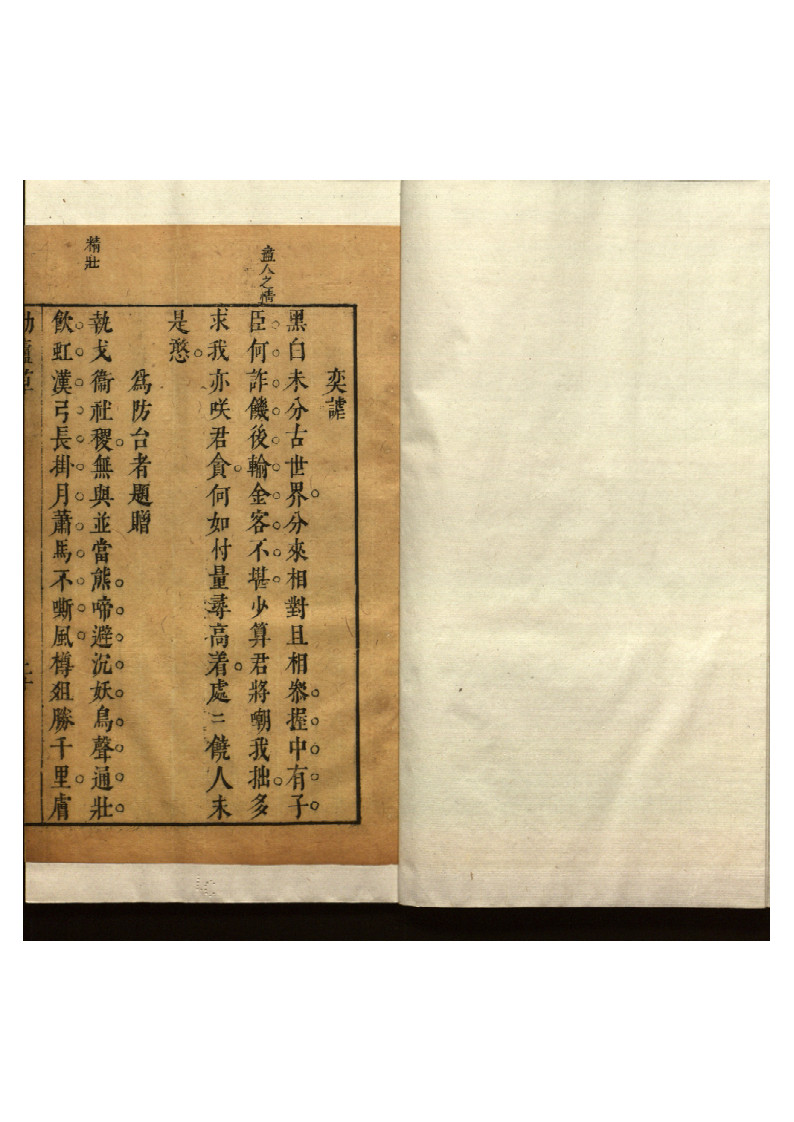 盡人之情
奕謔
黑白未分古世界分來相對且相叅握中有子
臣何詐饑後輸金客不堪少算君將嘲我拙多
求我亦咲君貪何如忖量尋高着處二饒人未
是憨
精壯
為防台者題贈
執戈衞社稷無與並當熊啼避沉妖鳥聲通壯
飲虹漢弓長掛月蕭馬不嘶風樽俎勝千里膚